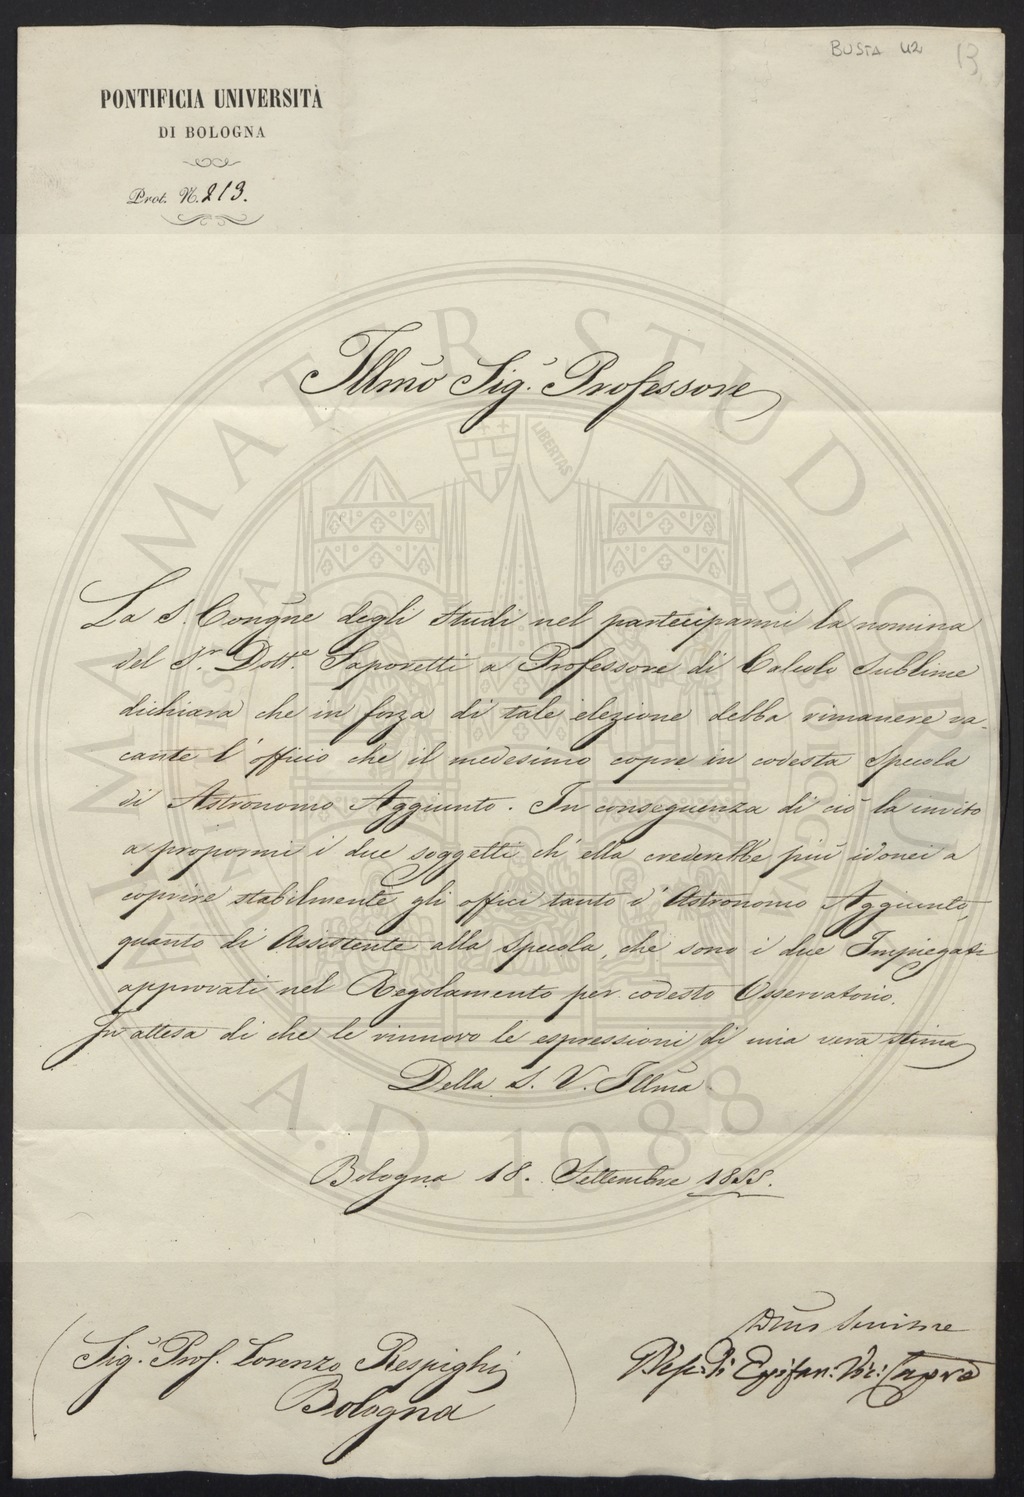 BUSTA 42
13
PONTIFICIA UNIVERSITÀ
DI BOLOGNA
Prot. N. 213.
Illmo Sig. Professore
La S. Congne degli Studi nel parteciparmi la nomina
del Sr. Dottre Saporetti a Professore di Calcolo Sublime
dichiara che in forza di tale elezione debba rimanere va-
cante l'officio che il medesimo copre in codesta Specola
di Astronomo Aggiunto. In conseguenza di ciò la invito
a propormi i due soggetti ch'ella crederebbe più idonei a
coprire stabilmente gli offici tanto d'Astronomo Aggiunto,
quanto di Assistente alla Specola, che sono i due Impiegati
approvati nel Regolamento per codesto Osservatorio.
In attesa di che le rinnovo le espressioni di mia vera stima
Della S. V. Illma
Bologna 18. Settembre 1855.
Sig. Prof. Lorenzo Respighi
Bologna
ALMA MATER STUDIORUM
LIBERTAS
A.D. 1088